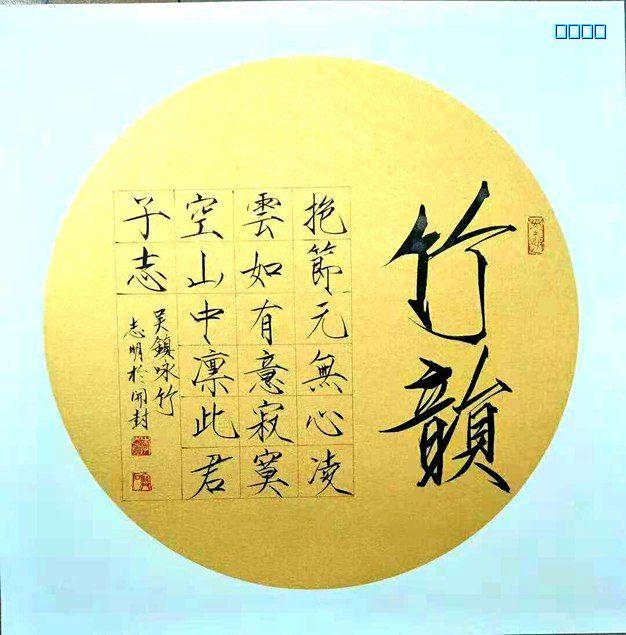 竹韻
抱節元無心凌
雲如有意寂寞
空山中凛此君
子志
吴鎮咏竹
志明於開封